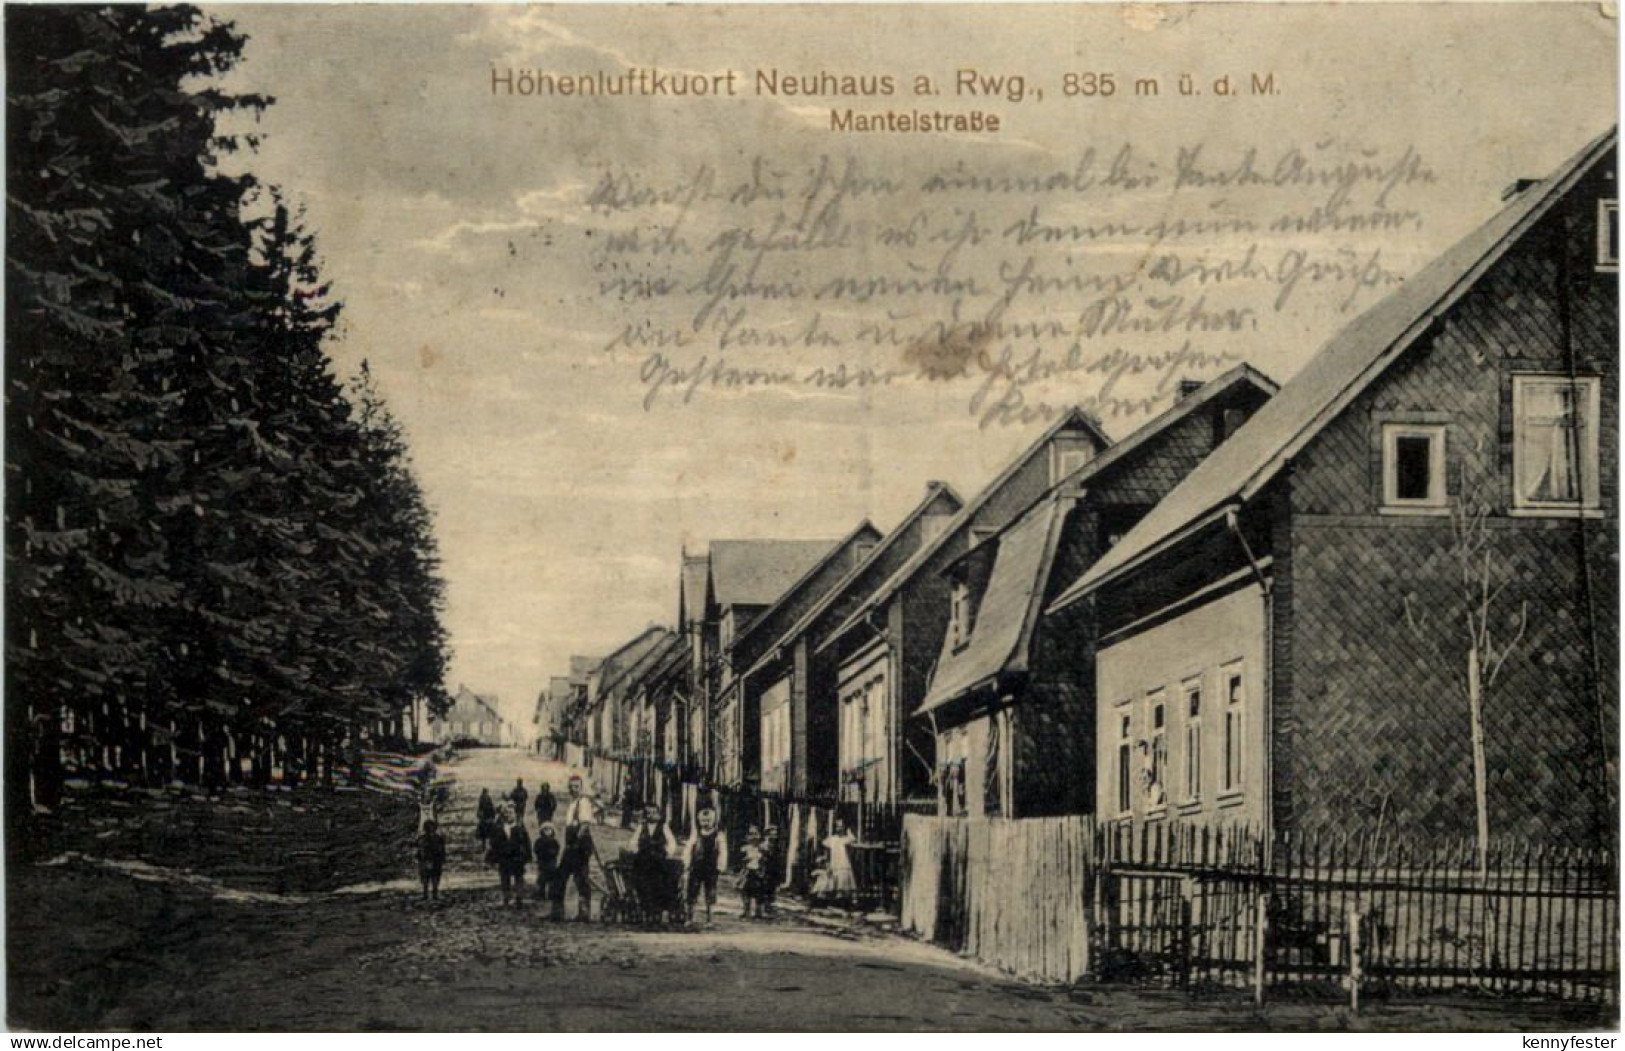 Höhenluftkuort Neuhaus a. Rwg., 835 m ü. d. M.
Mantelstraße
Warst du schon einmal bei Tante Auguste
wie gefällt es ihr denn nun wieder
im neuen Heim. Viele Grüße
an Tante u. Deine Mutter.
Gestern war Hotel großer
delcampe.net
kennyfester